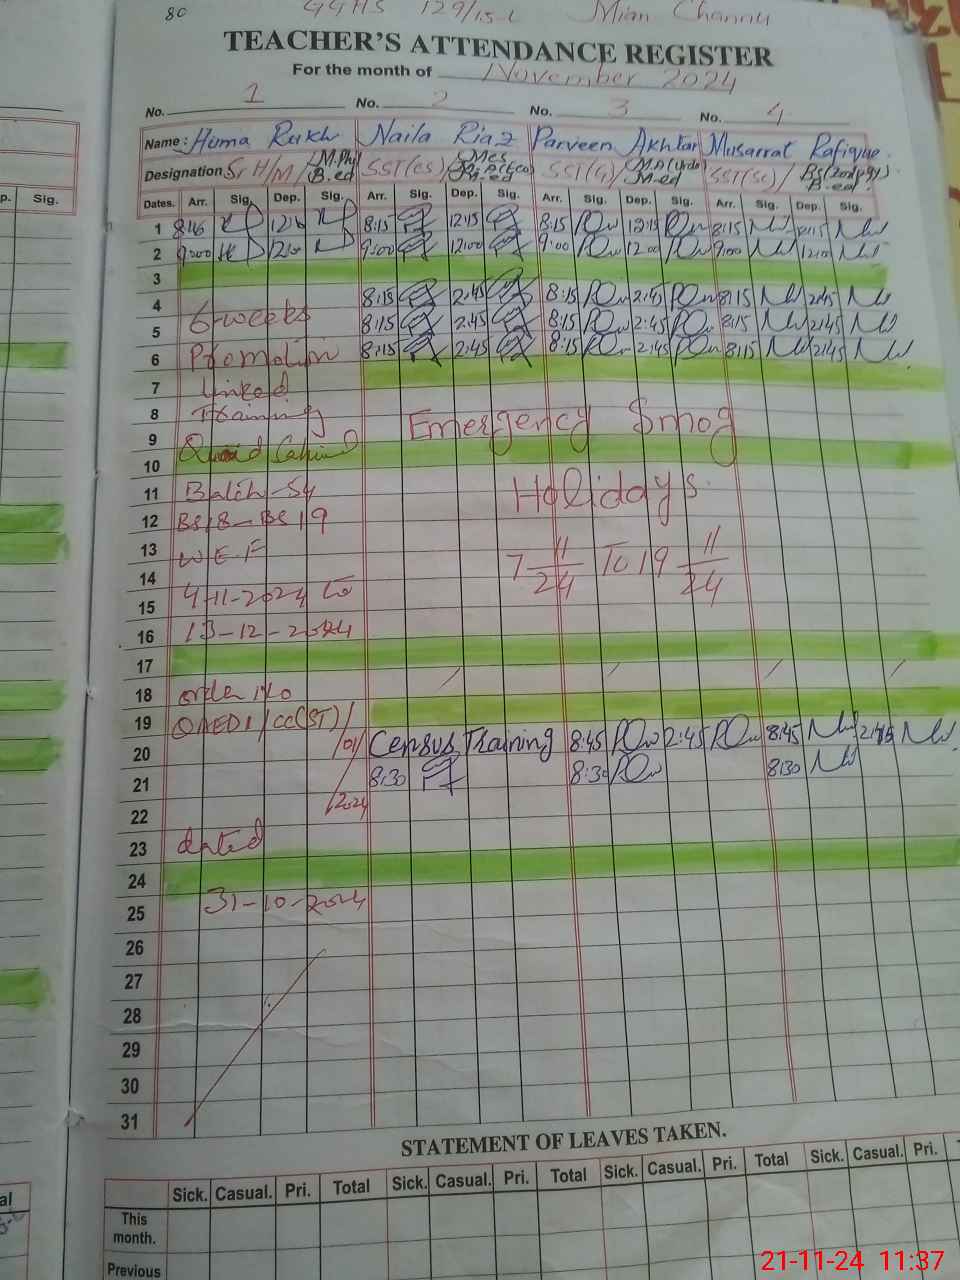 80 GGHS 129/15-L Mian Channu
TEACHER'S ATTENDANCE REGISTER
For the month of November 2024
No. 1 No. 2 No. 3 No. 4
Name: Huma Rukh Naila Riaz Parveen Akhtar Musarrat Rafique.
Designation Sr H/M/ M.Phil B.ed SST(CS)/ SST(G)/ M.A(Urdu) M.ed SST(SC)/ BS(Zoology) B.ed
Dates. Arr. Sig. Dep. Sig. Arr. Sig. Dep. Sig. Arr. Sig. Dep. Sig. Arr. Sig. Dep. Sig.
1 8:15 12:15 8:15 12:15 8:15 12:15
2 9:00 12:00 9:00 12:00 9:00 12:00 9:00 12:00
3
4 8:15 2:45 8:15 2:45 8:15 2:45
5 6-weeks 8:15 2:45 8:15 2:45 8:15 2:45
6 Promotion 8:15 2:45 8:15 2:45 8:15 2:45
7 linked
8 Training Emergency Smog
9
10 Quaid
11 Batch-54 Holidays.
12 BS18-BS19
13 W.E.F 7 11/24 To 19 11/24
14
15 4-11-2024 to
16 13-12-2024
17
18 order No
19 QAED1/CC(ST)/
20 /01/ Census Training 8:45 2:45 8:45 2:45
21 8:30 8:30 8:30
22 /2024
23 dated
24
25 31-10-2024
26
27
28
29
30
31
STATEMENT OF LEAVES TAKEN.
Sick. Casual. Pri. Total Sick. Casual. Pri. Total Sick. Casual. Pri. Total Sick. Casual. Pri.
This month.
Previous
p. Sig.
al
21-11-24 11:37